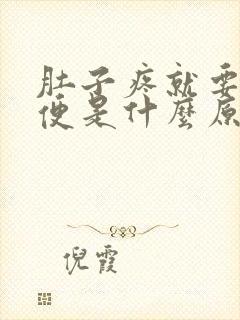 肚子疼就要
便是什麼原
倪霞